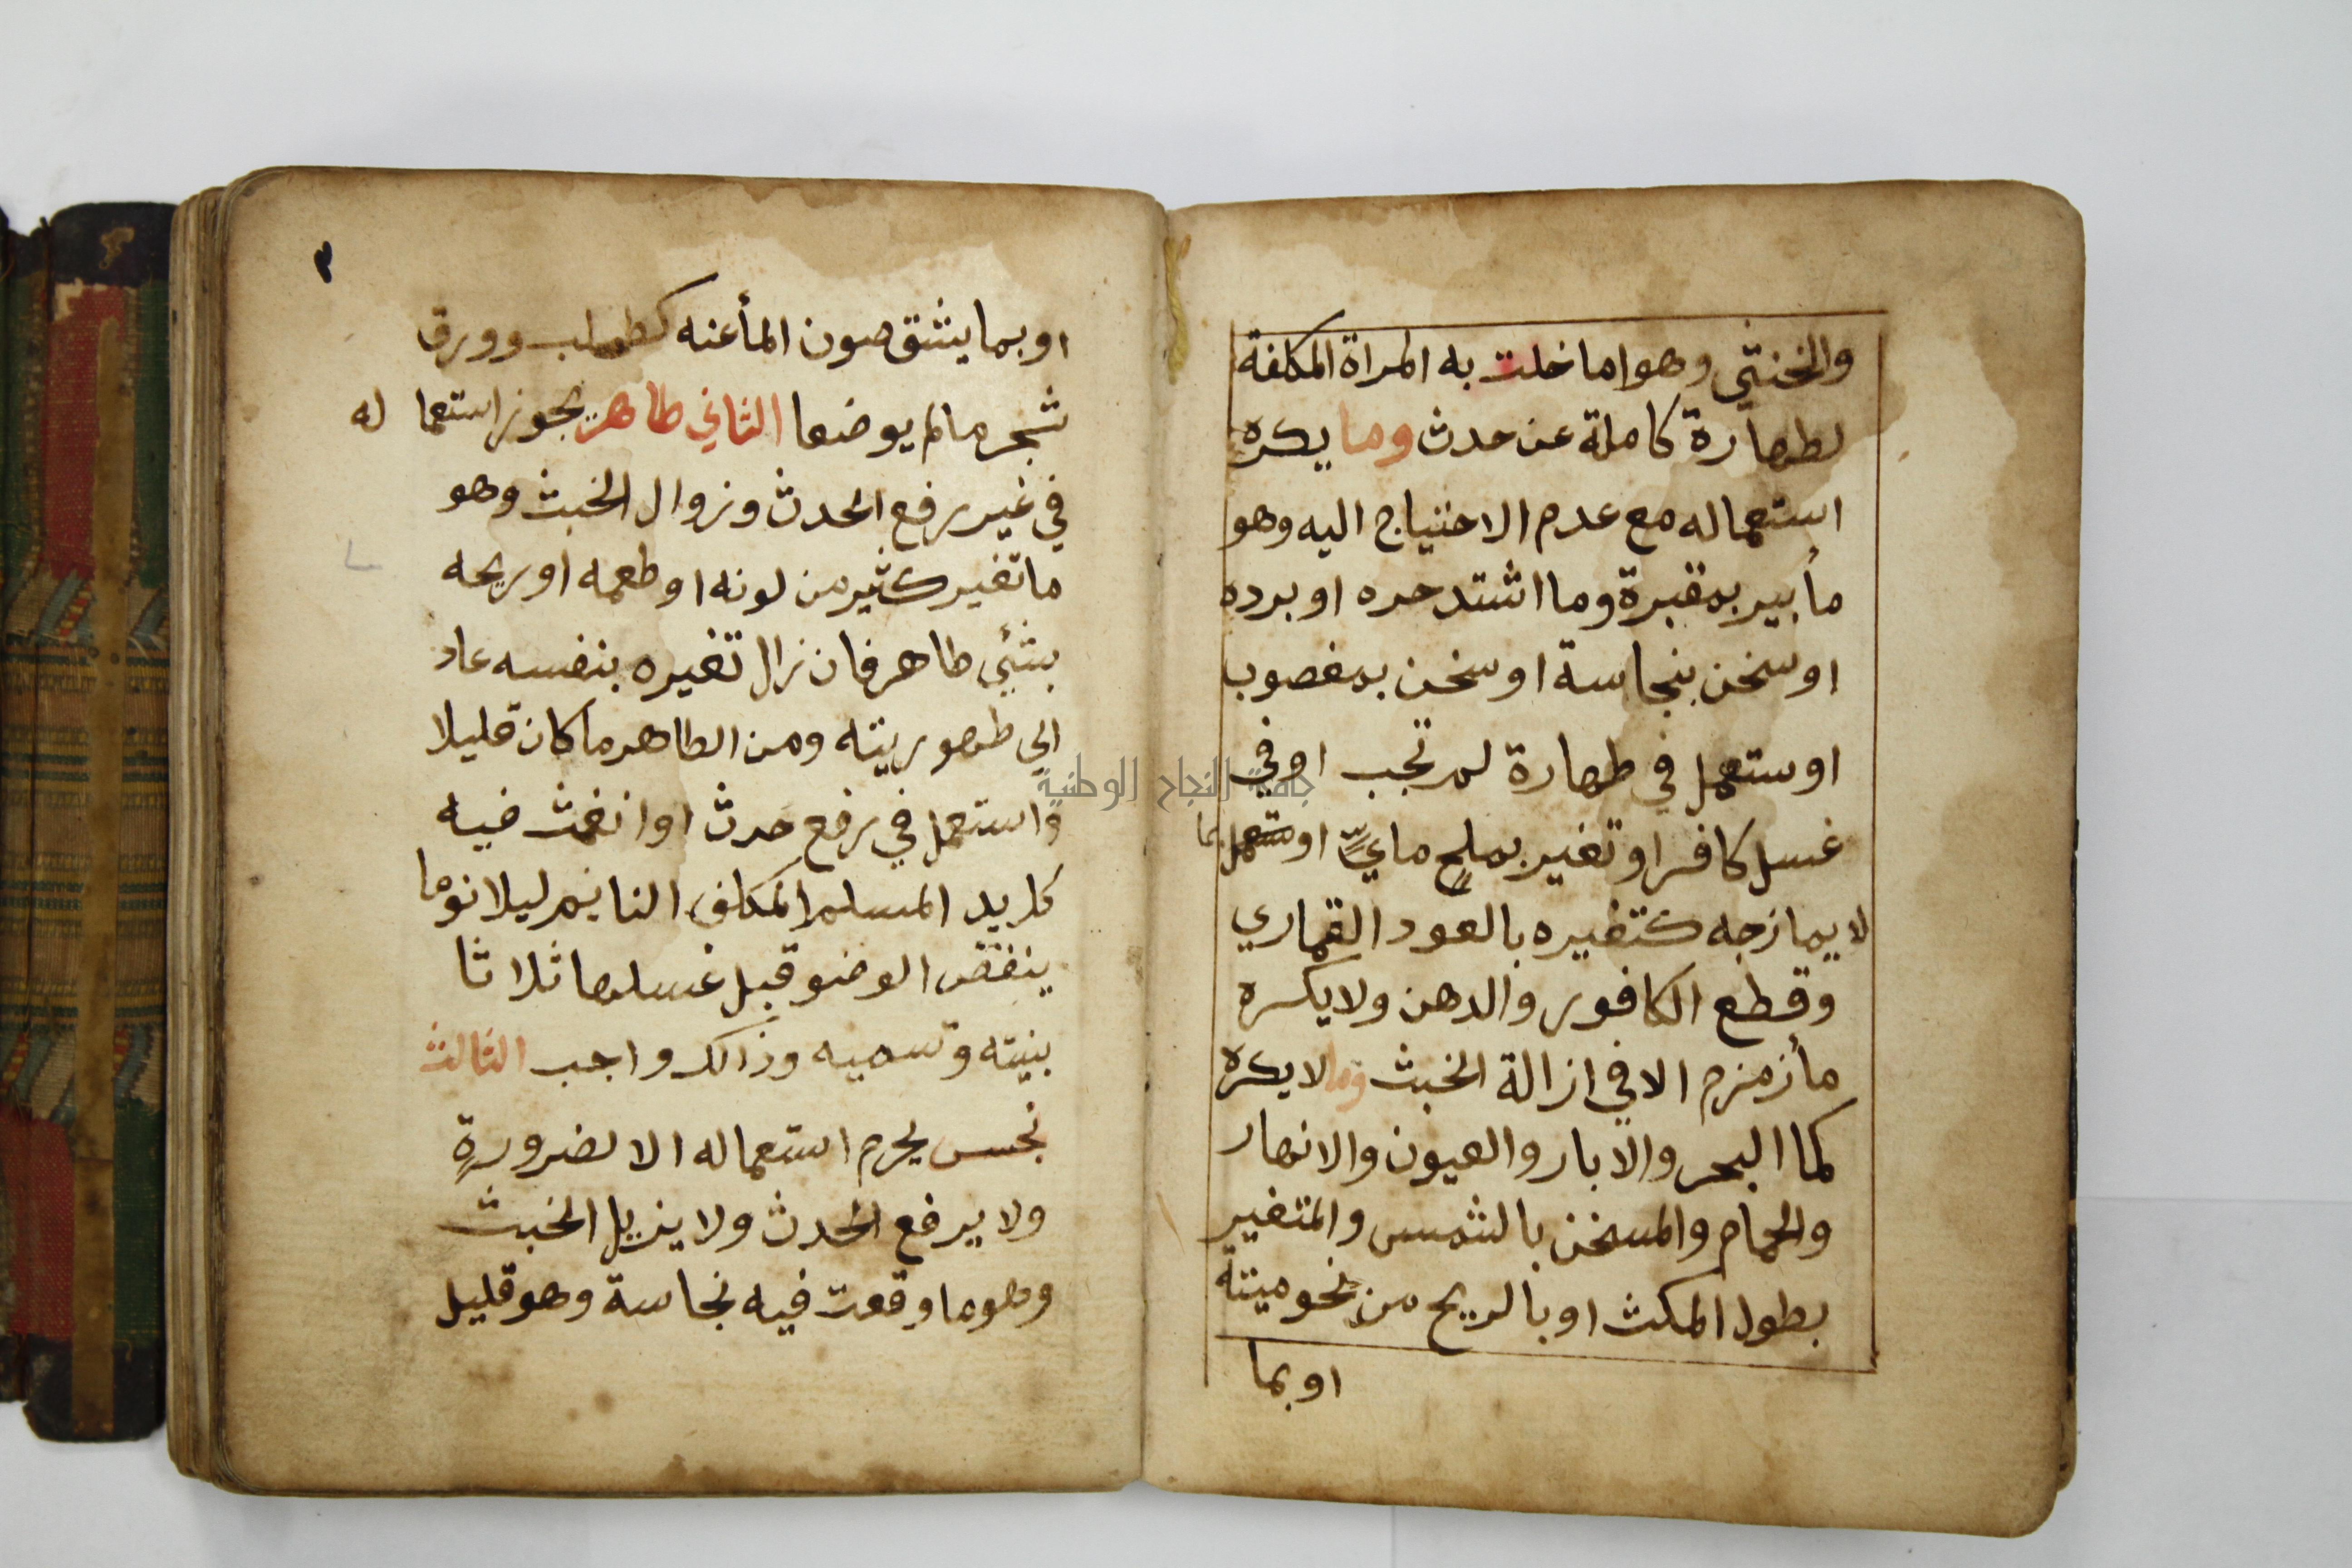 والخنثي وهو اما خلت به المراة المكلفة
لطهارة كاملة عن حدث وما يكره
استعماله مع عدم الاحتياج اليه وهو
مأ بير بمقبرة وما اشتد حره او برده
او سخن بنجاسة او سخن بمغصوب
او ستعمل في طهارة لم تجب او في
غسل كافر او تغير بملح مايٍّ او ستعمل بما
لا يمازجه كتغيره بالعود القماري
وقطع الكافور والدهن ولا يكره
مأ زمزم الا في ازالة الخبث وما لا يكره
كما البحر والابار والعيون والانهار
والحمام والمسخن بالشمس والمتغير
بطول المكث او بالريح من نحو ميتة
او بما
٣
او بما يشق صون المأ عنه كطحلب وورق
شجر ما لم يوضعا الثاني طاهر يجوز استعما له
في غير رفع الحدث وزوال الخبث وهو
ما تغير كثير من لونه او طعمه او ريحه
بشئي طاهر فان زال تغيره بنفسه عاد
الي طهوريته ومن الطاهر ما كان قليلا
واستعمل في رفع حدث او انغمث فيه
كل يد المسلم المكلف النايم ليلا نوما
ينقض الوضو قبل غسلها ثلاثا
بنيته وتسميه وذالك واجب الثالث
نجس يحرم استعماله الا لضرورة
ولا يرفع الحدث ولا يزيل الخبث
وهو ما وقعت فيه نجاسة وهو قليل
جامعة النجاح الوطنية